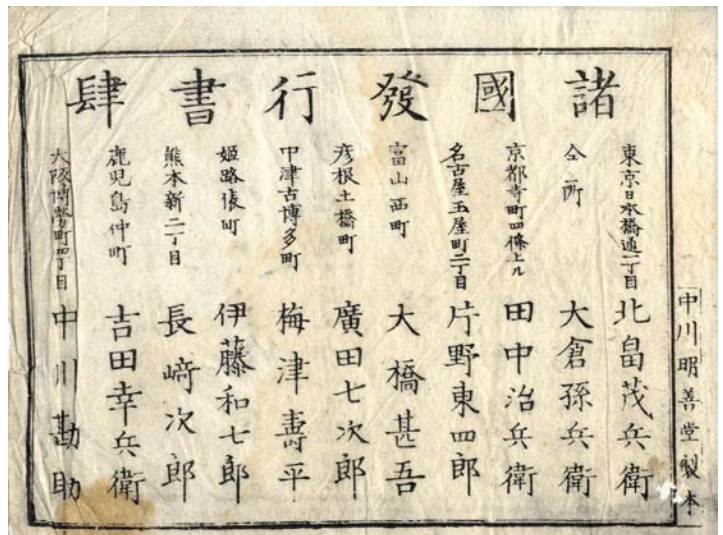 諸國發行書肆
東京日本橋通一丁目 北畠茂兵衛
仝所 大倉孫兵衛
京都寺町四條上ル 田中治兵衛
名古屋玉屋町二丁目 片野東四郎
富山西町 大橋甚吾
彦根土橋町 廣田七次郎
中津古博多町 梅津壽平
姫路俵町 伊藤和七郎
熊本新二丁目 長﨑次郎
鹿児島仲町 吉田幸兵衛
大阪博勞町四丁目 中川勘助
中川明善堂製本